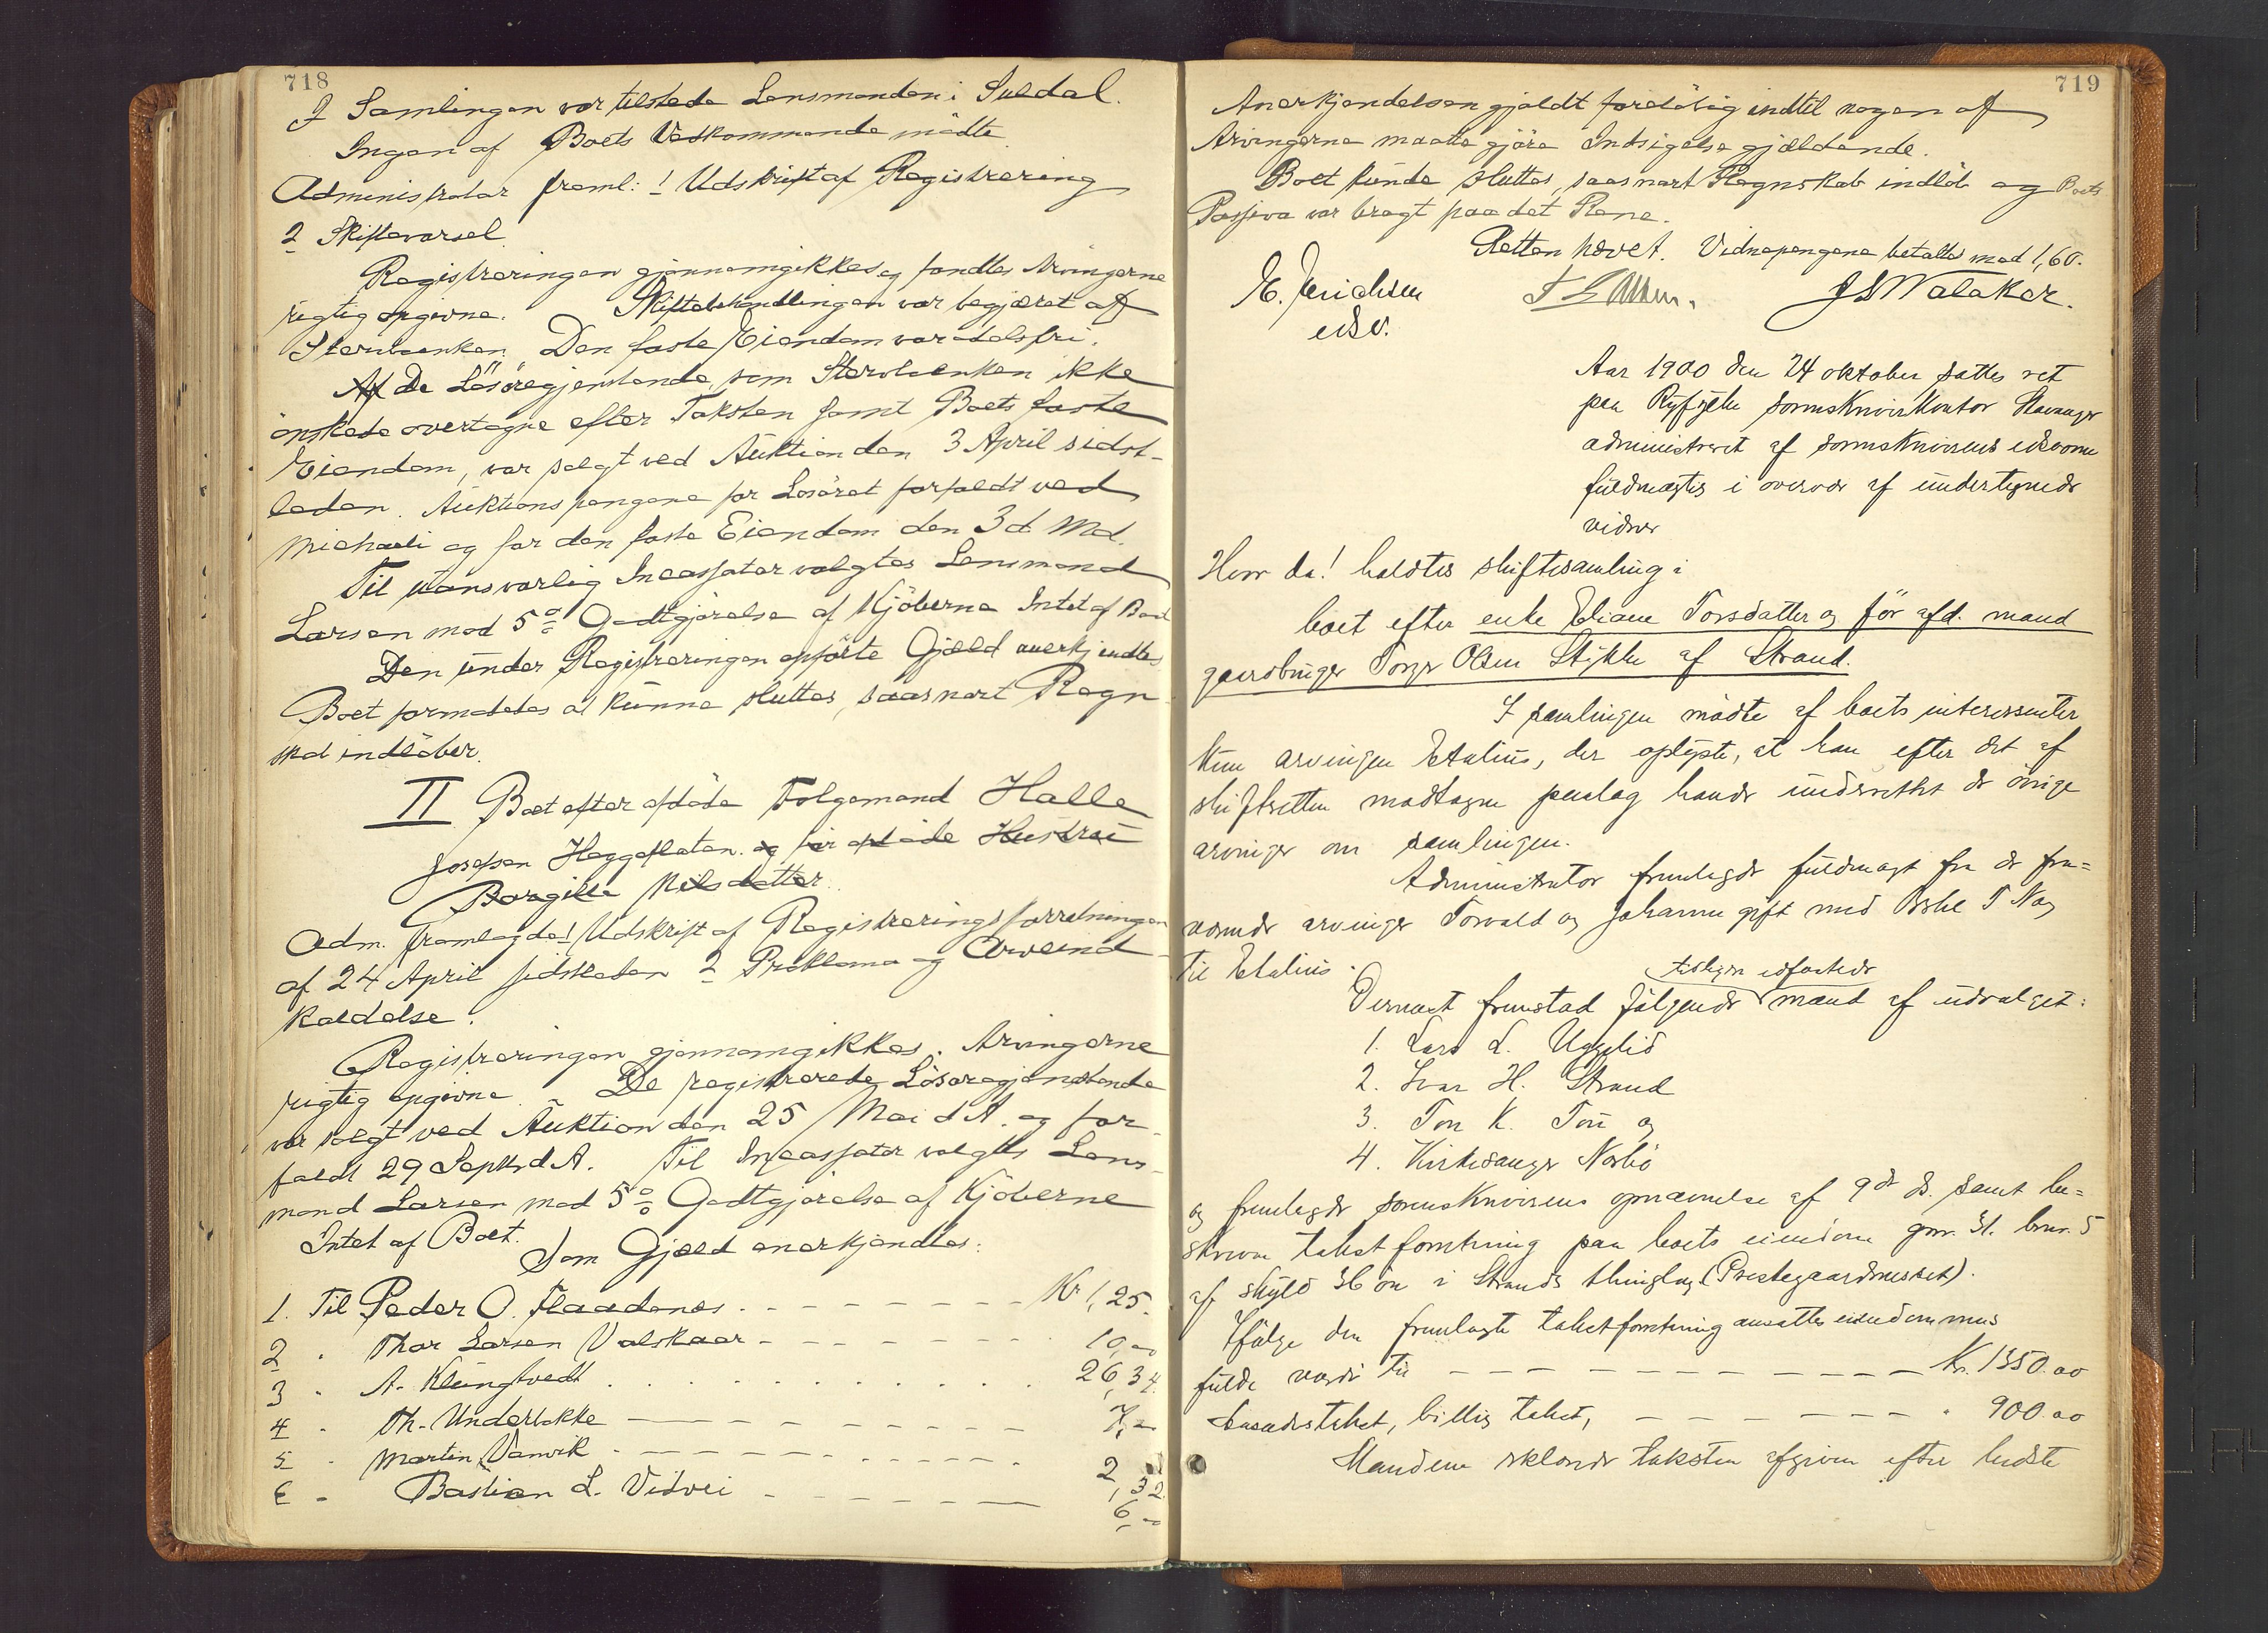 718
I Samlingen var tilstede Lensmanden i Suldal.
Ingen af Boets Vedkommende mødte
Administrator freml: 1 Udskrift af Registrering
2 Skiftevarsel.
Registreringen gjennemgikkes og fandtes Arvingerne
rigtig opgivne. Skiftebehandlingen var begjæret af
Stervbenken. Den faste Eiendom var odelsfri.
Af De Løsøregjenstande, som Stervbenken ikke
ønskede overtagne efter Taksten samt Boets faste
Eiendom, var solgt ved Auktion den 3 April sidst-
leden. Auktionspengene for Løsøret forfaldt ved
Michaeli og for den faste Eiendom den 3 d Md.
Til uansvarlig Incassator valgtes Lensmand
Larsen mod 5% Godtgjørelse af Kjøberne Intet af Boet
Den under Registreringen opførte Gjæld anerkjendtes
Boet formodedes at kunne sluttes, saasnart Regn
skab indløber.
II Boet efter afdøde Folgemand Halle
Josefsen Heggeflaten og før afdøde Hustru
Borgille Nilsdatter.
Adm. fremlagde 1 Udskrift af Registreringsforretningen
af 24 April sidstleden 2 Proklama og Arveind
kaldelse.
Registreringen gjennemgikkes. Arvingerne
rigtig opgivne. De registrerede Løsøregjenstande
var solgt ved Auktion den 25 Mai d A. og for-
faldt 29 Septbr d A. Til Incassator valgtes Lens-
mand Larsen mod 5% Godtgjørelse af Kjøberne
Intet af Boet.
Som Gjæld anerkjendtes:
1. Til Peder O. Flaadenes Kr 1,25.
2 " Thor Larsen Valskaar 10,00
3 " A. Klungtvedt 26,34.
4 " Th. Underbakke 7,00
5 " Martin Vanvik 2,32
6 " Bastian L. Vidvei 6,00
719
Anerkjendelsen gjaldt foreløbig indtil nogen af
Arvingerne maatte gjøre Indsigelse gjældende.
Boet kunde sluttes, saasnart Regnskab indløb og Boets
Passiva var bragt paa det Rene.
Retten hævet. Vidnepengene betaltes med 1,60.
E. Erichsen J S Walaker.
edsv.
Aar 1900 den 24 oktober sattes ret
paa Ryfylke sorenskriverkontor Stavanger
administreret af sorenskriverens edsvorne
fuldmægtig i overvær af undertegnede
vidner
Hvor da! holdtes skiftesamling i
boet efter enke Eliane Torsdatter og før afd. mand
gaardbruger Torger Olsen Stykke af Strand.
I samlingen mødte af boets interessenter
kun arvingen Etalius, der oplyste, at han efter det af
skifteretten modtagne paalæg havde underrettet de øvrige
arvinger om samlingen.
Administrator fremlagde fuldmagt fra de fra=
værende arvinger Torvald og Johanne gift med T Nag
til Etalius.
tidligere edfæstede
Dernæst fremstod følgende mænd af udvalget:
1. Lars L. Uggelid
2. Ivar H. Strand
3. Ton K. Tou og
4. Kirkesanger Norbø
og fremlagde sorenskriverens opnævnelse af 9de ds. samt be=
skreven takstforretning paa boets eiendom gnr. 31. brnr. 5
af skyld 36 øre i Strands thinglag (Prestegaardmarken).
Ifølge den fremlagte takstforretning ansattes eiendommens
fulde værdi til Kr. 1350.00
Aasædestakst, billig takst, " 900.00
Mændene erklærede taksten afgiven efter bedste